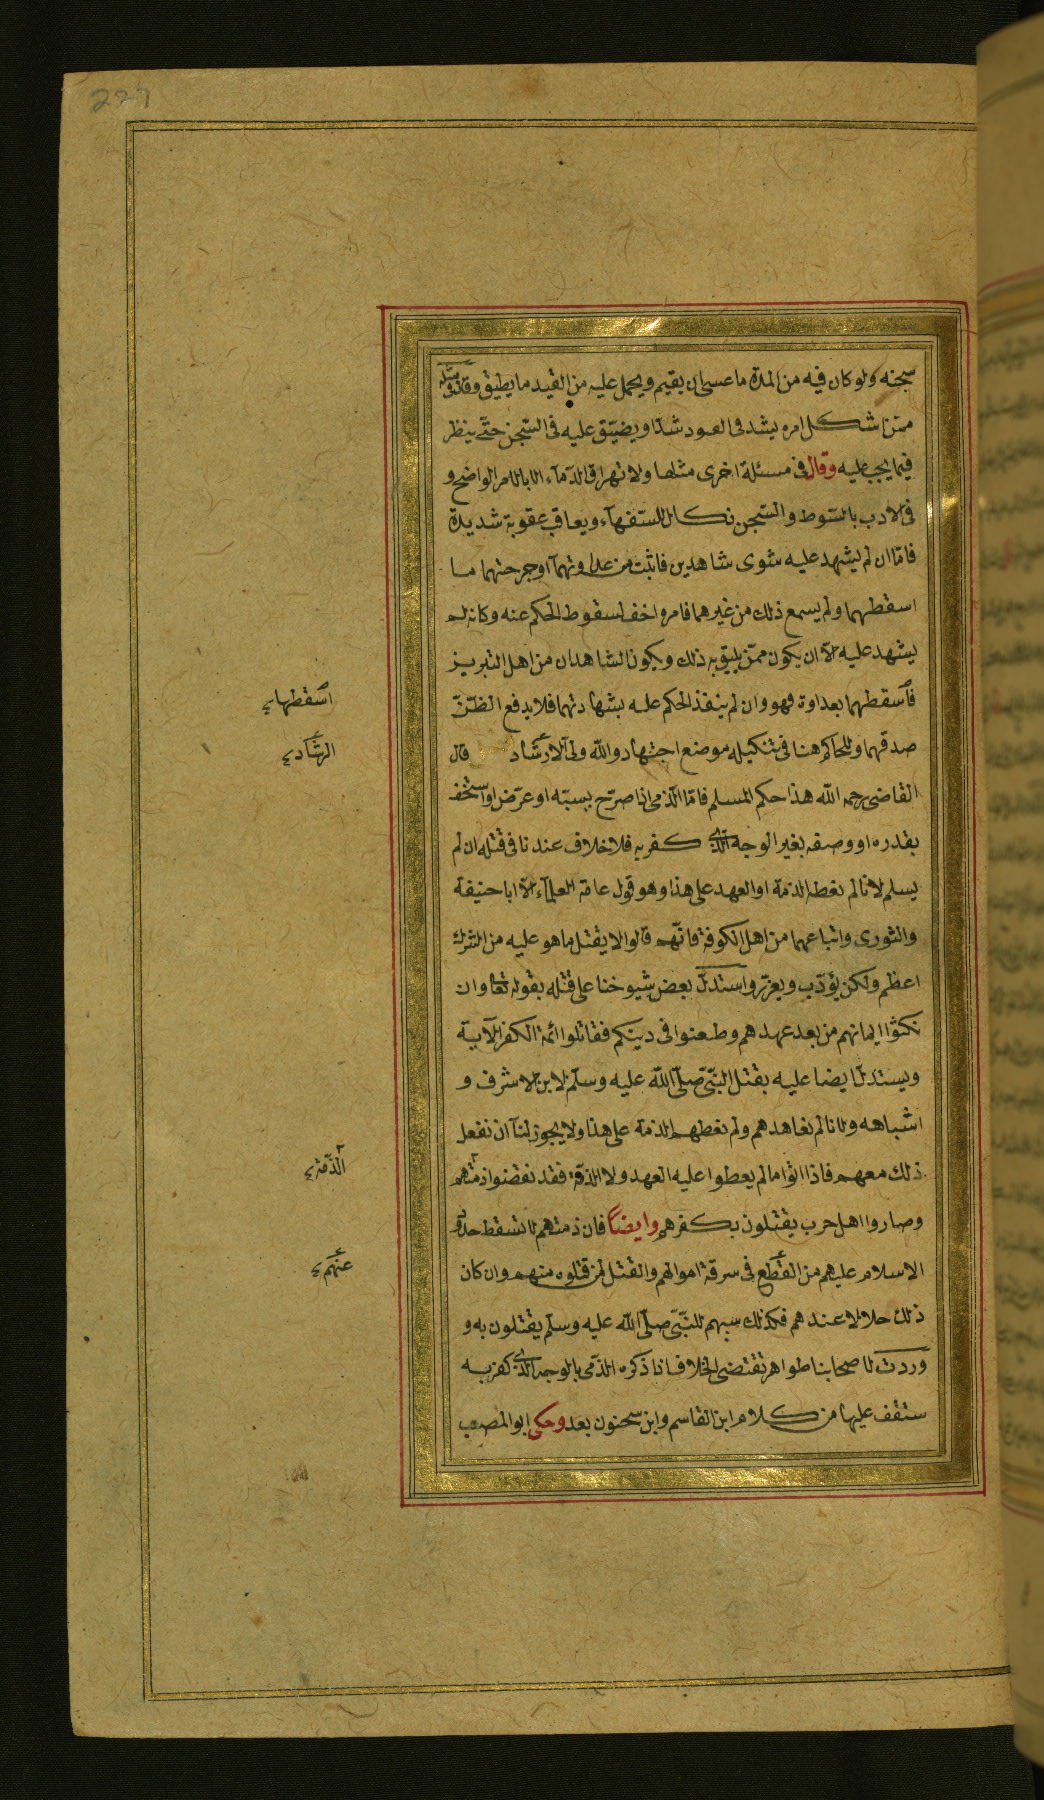 سجنه ولو كان فيه من المدة ما عسى ان يقيم ويحمل عليه من القيد ما يطيق وقال في مثله
ممّن اشكل امره يشد في القيود شدّا ويضيّق عليه في السّجن حتّى ينظر
فيما يجب عليه وقال في مسئلة اخرى مثلها ولا تهراق الدّمآء الا بالامر الواضح و
في الادب بالسّوط والسّجن نكال للسّفهآء ويعاقب عقوبة شديدة
فامّا ان لم يشهد عليه سوى شاهدين فاثبت من عداوتهمآ او جرحتهما ما
اسقطهما ولم يسمع ذلك من غيرهما فامره اخف لسقوط الحكم عنه وكانه لم
يشهد عليه الّا ان يكون ممّن يليق به ذلك ويكون الشاهدان من اهل التبريز
فأسقطهما بعداوة فهو وان لم ينفذ الحكم عليه بشهادتهما فلا يدفع الظّنّ
صدقهما وللحاكم هنا في تنكيله موضع اجتهاد والله ولى الارشاد قال
القاضى رحمه الله هذا حكم المسلم فامّا الذّمى اذا صرّح بسبّه او عرّض او استخف
بقدره او وصفه بغير الوجه الّذى كفر به فلا خلاف عندنا في قتله ان لم
يسلم لانا لم نعطه الذمّة او العهد على هذا وهو قول عامّة العلمآء الّا ابا حنيفة
والثورى واتباعهما من اهل الكوفة فانّهم قالوا لا يقتل ما هو عليه من الشرك
اعظم ولكن يؤدّب ويعزّر واستدلّ بعض شيوخنا على قتله بقوله تعا وان
نكثوا ايمانهم من بعد عهدهم وطعنوا في دينكم فقاتلوا ائمة الكفر الآية
ويستدلّ ايضا عليه بقتل النبّىّ صلّى الله عليه وسلّم لابن الاشرف و
اشباهه ولانا لم نعاهدهم ولم نعطهم الذمة على هذا ولا يجوز لنآ ان نفعل
ذلك معهم فاذا اتوا ما لم يعطوا عليه العهد ولا الذمّة فقد نقضوا ذمتهم
وصاروا اهل حرب يقتلون بكفرهم وايضاً فان ذمتهم لا تسقط حدود
الاسلام عليهم من القطع في سرقة اموالهم والقتل لمن قتلوه منهم وان كان
ذلك حلالا عندهم فكذلك سبهم للنّبىّ صلّى الله عليه وسلّم يقتلون به و
وردت لاصحابنا ظواهر تقتضى الخلاف اذا ذكره الذّمى بالوجه الّذى كفر به
ستقف عليها من كلام ابن القاسم وابن سحنون بعد وحكى ابو المصعب
اسقطها
الرشاد
الذّمة
عنهم
227